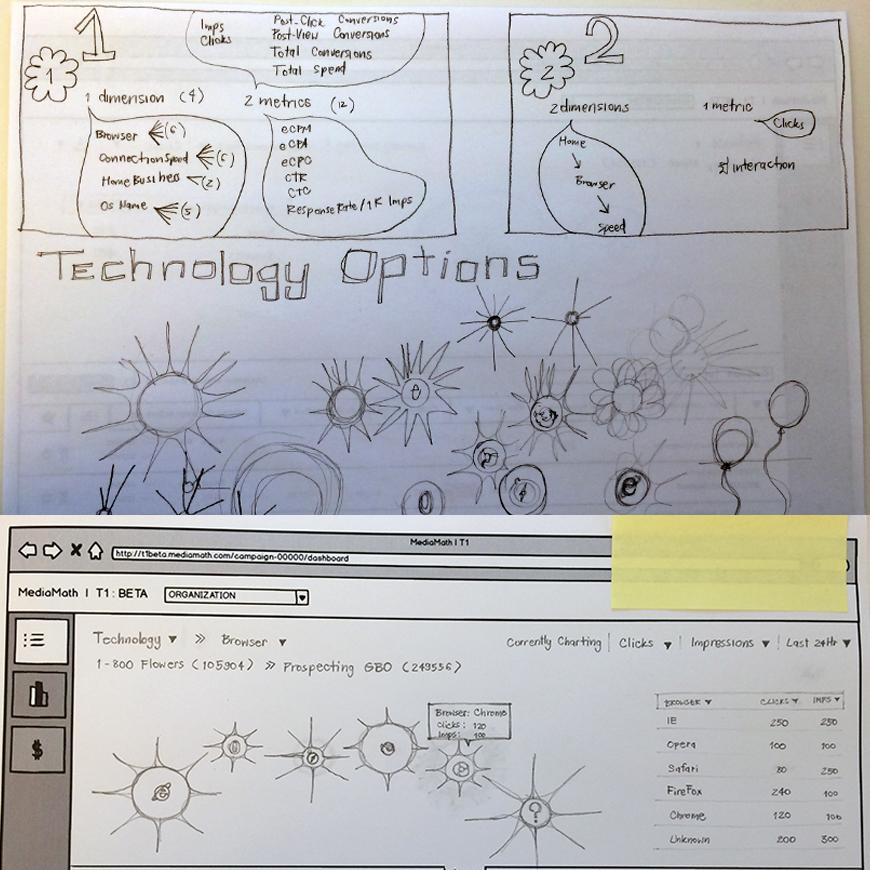 1
Imps
Clicks
Post-Click Conversions
Post-View Conversions
Total Conversions
Total Spend
1
1 dimension (4)
2 metrics (12)
Browser (6)
Connection Speed (5)
Home Business (2)
Os Name (5)
eCPM
eCPA
eCPC
CTR
CTC
Response Rate / 1K Imps
2
2
2 dimensions
1 metric
Clicks
Home
Browser
Speed
interaction
Technology Options
MediaMath | T1
http://t1beta.mediamath.com/campaign-00000/dashboard
MediaMath | T1: BETA
ORGANIZATION
$
Technology » Browser
Currently Charting | Clicks | Impressions | Last 24Hr
1-800 Flowers (105904) » Prospecting GBO (249556)
Browser: Chrome
Clicks: 120
Imps: 100
?
BROWSER CLICKS IMPS
IE 250 250
Opera 100 100
Safari 80 250
FireFox 240 100
Chrome 120 100
Unknown 200 300